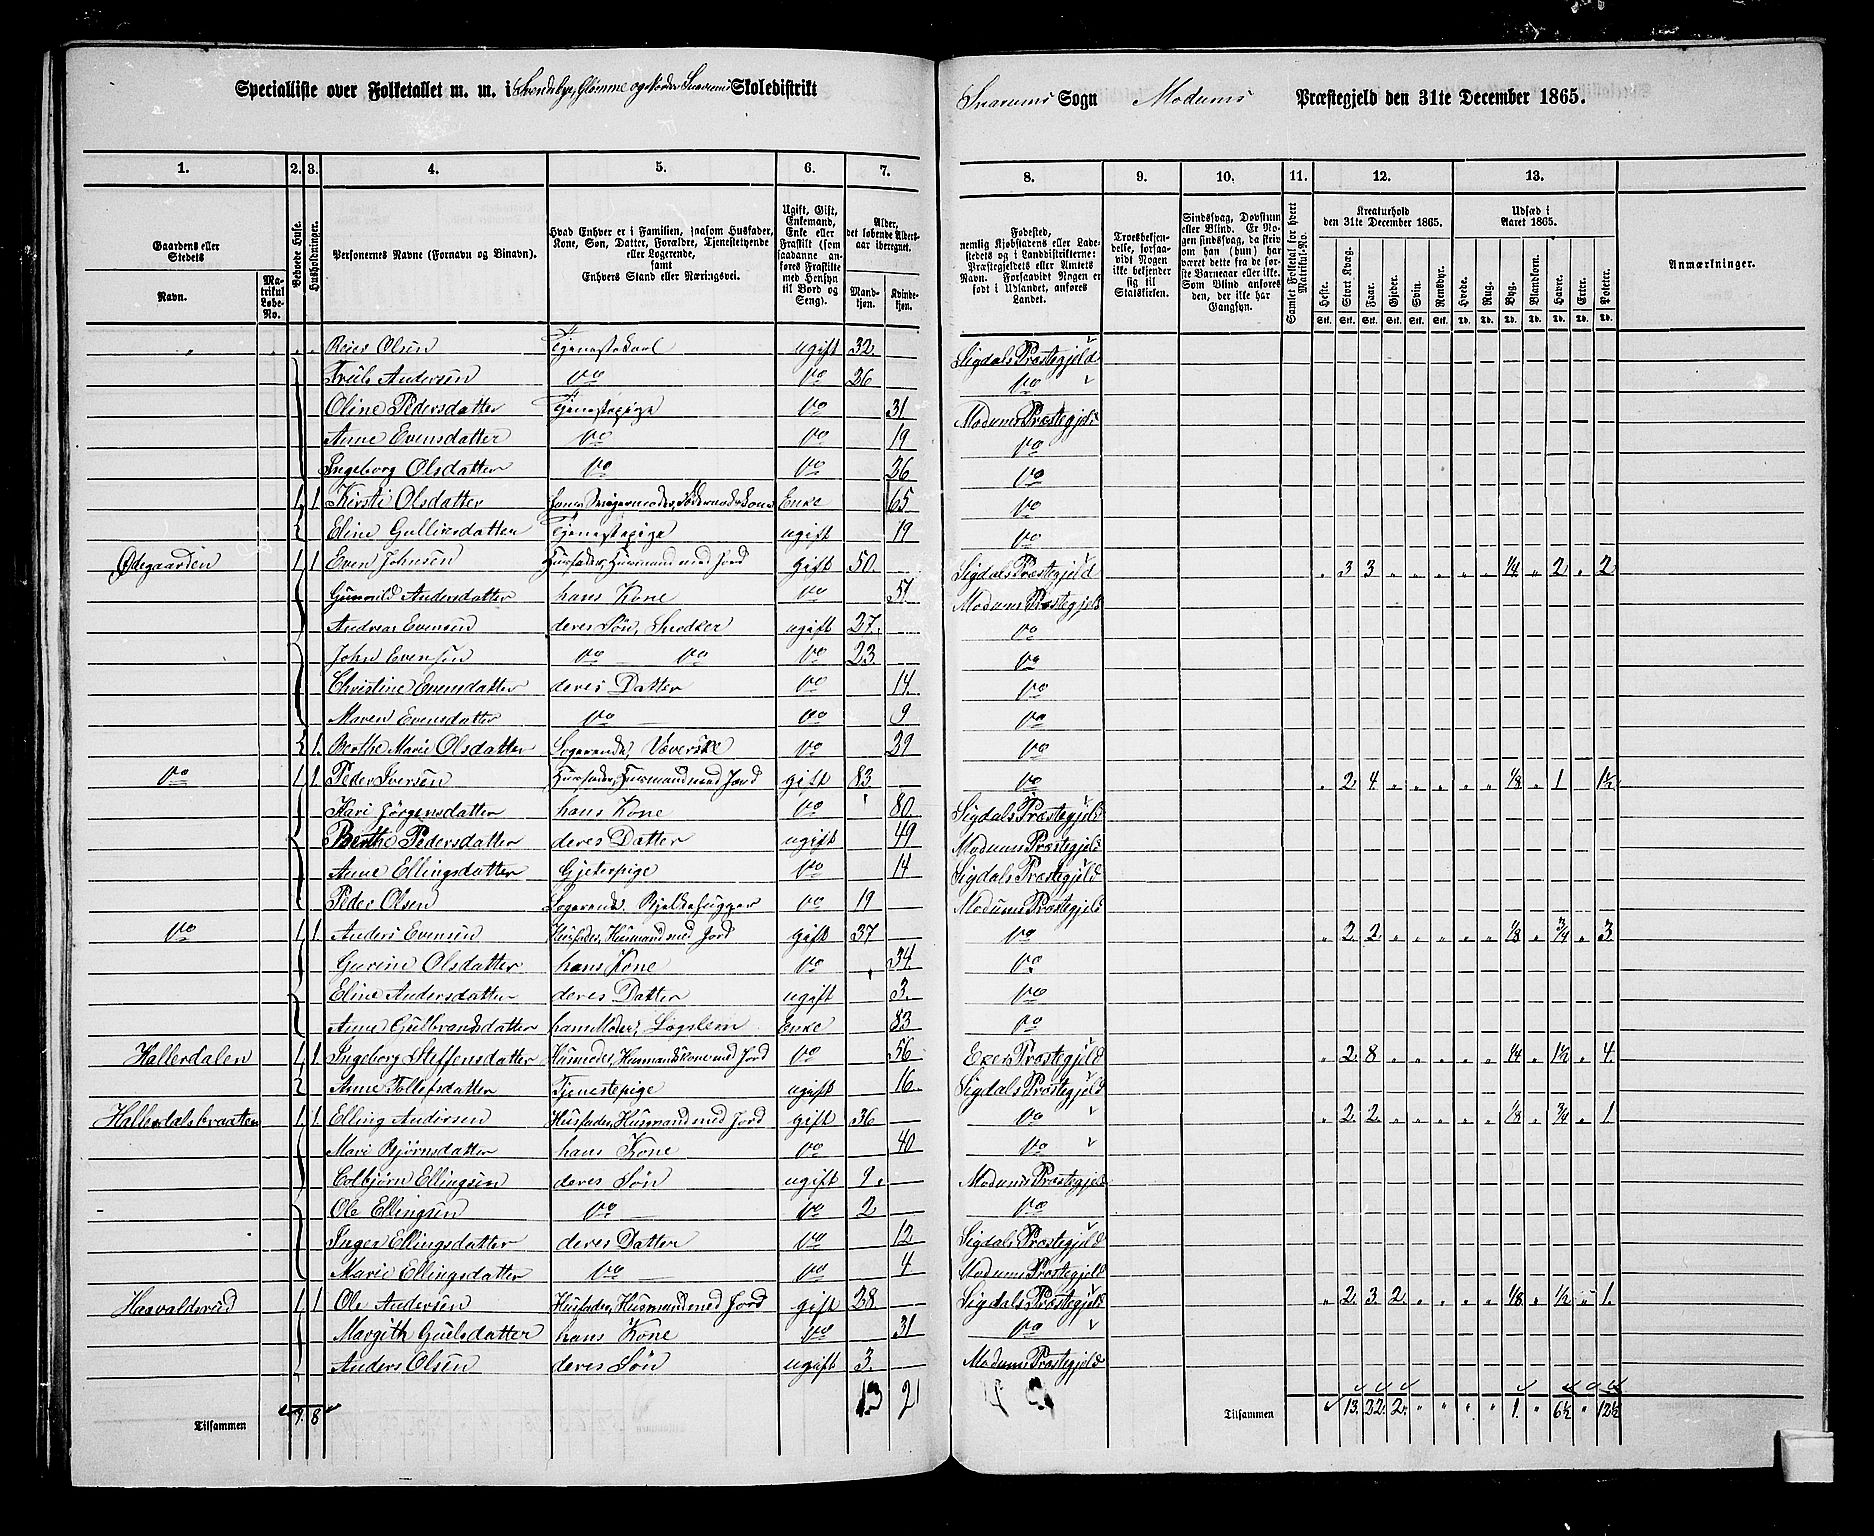 Specialliste over Folketallet m. m. i Skoledistrikt
Snarums Sogn Modums Præstegjeld den 31te December 1865.
1. 2. 3. 4. 5. 6. 7. 8. 9. 10. 11. 12. 13.
Gaardens eller Stedets
Navn.
Matrikul Løbe-No.
Beboede Huse.
Husholdninger.
Personernes Navne (Fornavn og Binavn).
Hvad Enhver er i Familien, saasom Husfader, Kone, Søn, Datter, Forældre, Tjenestetyende eller Logerende, samt Enhvers Stand eller Næringsvei.
Ugift, Gift, Enkemand, Enke eller Fraskilt (som saadanne anføres Fraskilte med Hensyn til Bord og Seng).
Alder, det løbende Aldersaar iberegnet.
Mandkjøn.
Kvindekjøn.
Fødested, nemlig Kjøbstadens eller Ladestedets og i Landdistrikterne: Præstegjeldets eller Amtets Navn. Forsaavidt Nogen er født i Udlandet, anføres Landet.
Troesbekjendelse, forsaavidt Nogen ikke bekjender sig til Statskirken.
Sindssvag, Døvstum eller Blind. Er Nogen sindssvag, da skriv om han (hun) har været dette fra de første Barneaar eller ikke. Som Blind anføres den, der ikke har Gangsyn.
Samlet Folketal for hvert Matrikul-No.
Kreaturhold den 31te December 1865.
Heste. Stort Kvæg. Faar. Gjeder. Svin. Rensdyr.
Stk. Stk. Stk. Stk. Stk. Stk.
Udsæd i Aaret 1865.
Hvede. Rug. Byg. Blandkorn. Havre. Erter. Poteter.
Td. Td. Td. Td. Td. Td. Td.
Anmærkninger.
" " " " Reier Olsen Tjenestekarl ugift 32. Sigdals Præstegjeld
Truls Andersen Do Do 26 Do
Oline Pedersdatter Tjenestepige Do 31 Modums Præstegjeld
Anne Evensdatter Do Do 19 Do
Ingeborg Olsdatter Do Do 26 Do
1 1 Kirsti Olsdatter Enke 65 Do
Eline Gulliksdatter Tjenestepige ugift 19 Do
Ødegaarden 1 1 Even Johnsen Husfader, Husmand med Jord gift 50. Sigdals Præstegjeld " 3 3 " " " " " 1/4 " 2 " 2
Gunnild Andersdatter hans Kone Do 51 Modums Præstegjeld
Andreas Evensen deres Søn, Snedker ugift 27. Do
John Evensen Do Do Do 23. Do
Christine Evensdatter deres Datter Do 14. Do
Maren Evensdatter Do Do 9 Do
1. Berthe Marie Olsdatter Logerende, Væverske Do 39 Do
Do 1 1. Peder Iversen Husfader, Husmand med Jord gift 83. Do " 2 4 " " " " " 1/8 " 1 1½
Kari Jörgensdatter hans Kone Do 80. Sigdals Præstegjeld
Berthe Pedersdatter deres Datter ugift 49 Modums Præstegjeld
Anne Ellingsdatter Gjeterpige Do 14 Sigdals Præstegjeld
Peder Olsen Logerende. Bjelkehugger Do 19 Modums Præstegjeld
Do 1 1. Anders Evensen Husfader, Husmand med Jord gift 37 Do " 2. 2. " " " " " 1/8 " 3/4 " 3
Gurine Olsdatter hans Kone Do 34. Do
Eline Andersdatter deres Datter ugift 3. Do
Anne Gulbrandsdatter hans Moder, Lægslem Enke 83 Do
Hallerdalen 1 1 Ingeborg Steffensdatter Husmoder, Husmandskone med Jord Do 56 Eker Præstegjeld " 2. 8 " " " " " 1/4 " 1½ " 4.
Anne Tollefsdatter Tjenestepige ugift 16 Sigdals Præstegjeld
Hallerdalsbraaten 1 1 Elling Andersen Husfader, Husmand med Jord gift 36 Do " 2. 2. " " " " " 1/8 " 3/4 " 1
Mari Bjørnsdatter hans Kone Do 40 Do
Colbjørn Ellingsen deres Søn ugift 9. Modums Præstegjeld
Ole Ellingsen Do Do 2 Do
Inger Ellingsdatter deres Datter Do 12 Sigdals Præstegjeld
Marie Ellingsdatter Do Do 4 Modums Præstegjeld
Haavaldsrud 1 1 Ole Andersen Husfader, Husmand med Jord gift 28. Sigdals Præstegjeld " 2. 3. 2 " " " " 1/8 " 1/2 " 1.
Margith Gulsdatter hans Kone Do 31 Do
Anders Olsen deres Søn ugift 3. Modums Præstegjeld
13 21
Tilsammen 7. 8
Tilsammen 13. 22. 2. " " " " 1. " 6½ " 12½